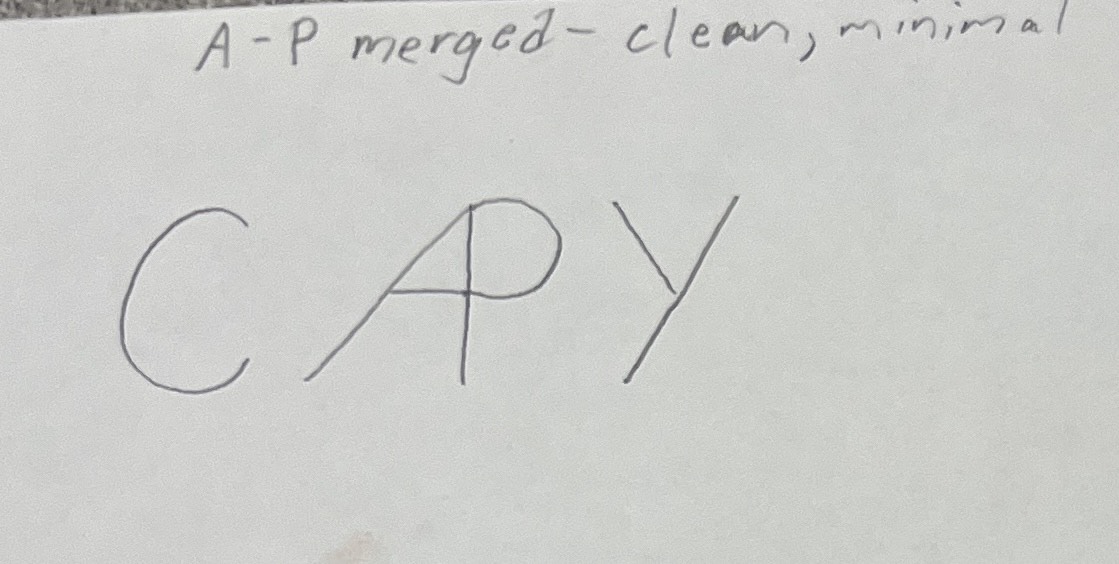 A-P merged- clean, minimal
CAPY